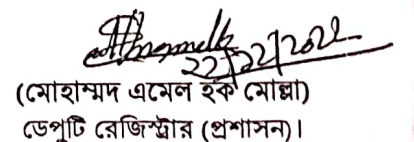 22/02/2022
(মোহাম্মদ এমেল হক মোল্লা)
ডেপুটি রেজিস্ট্রার (প্রশাসন)।